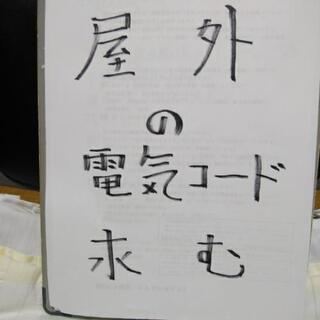 屋外
の
電気コード
求む